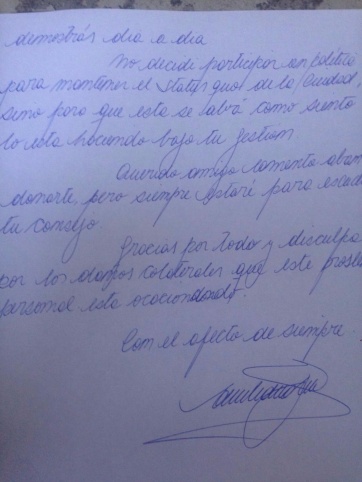 demostrás dia a dia
No decidi participar en politica
para mantener el Status quo de la Ciudad,
sino para que esta se abrá como siento
lo esta haciendo bajo tu gestión
Querido amigo lamento aban
donarte, pero siempre estaré para escuc
tu consejo.
Gracias por todo y disculpa
por los daños colaterales que este probl
personal esta ocacionando.
Con el afecto de siempre